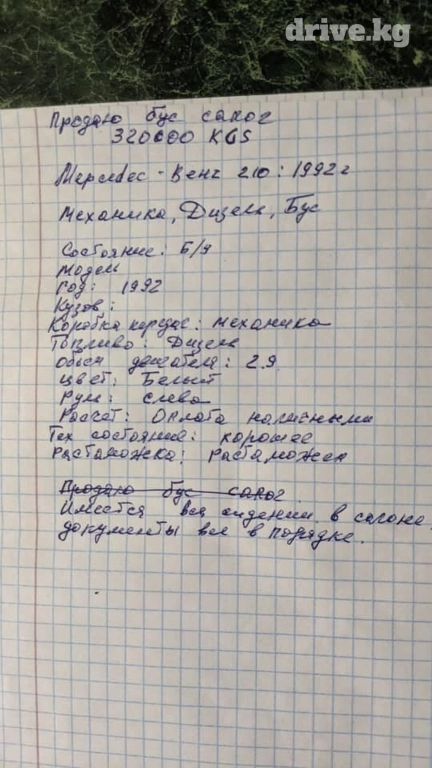 drive.kg
Продаю бус сапог
320000 KGS
Мерседес-Бенц 210: 1992 г
Механика, Дизель, Бус
Состояние: Б/У
Модел
Год: 1992
Кузов:
Коробка передас: механика
Топливо: Дизель
Обьем двигателя: 2.9
Цвет: Белый
Рул: слева
Расчет: Оплата наличными
Тех состояние: хорошее
Растаможка: растаможен
Продаю бус сапог
Имеется все сидении в салоне,
документы все в порядке.